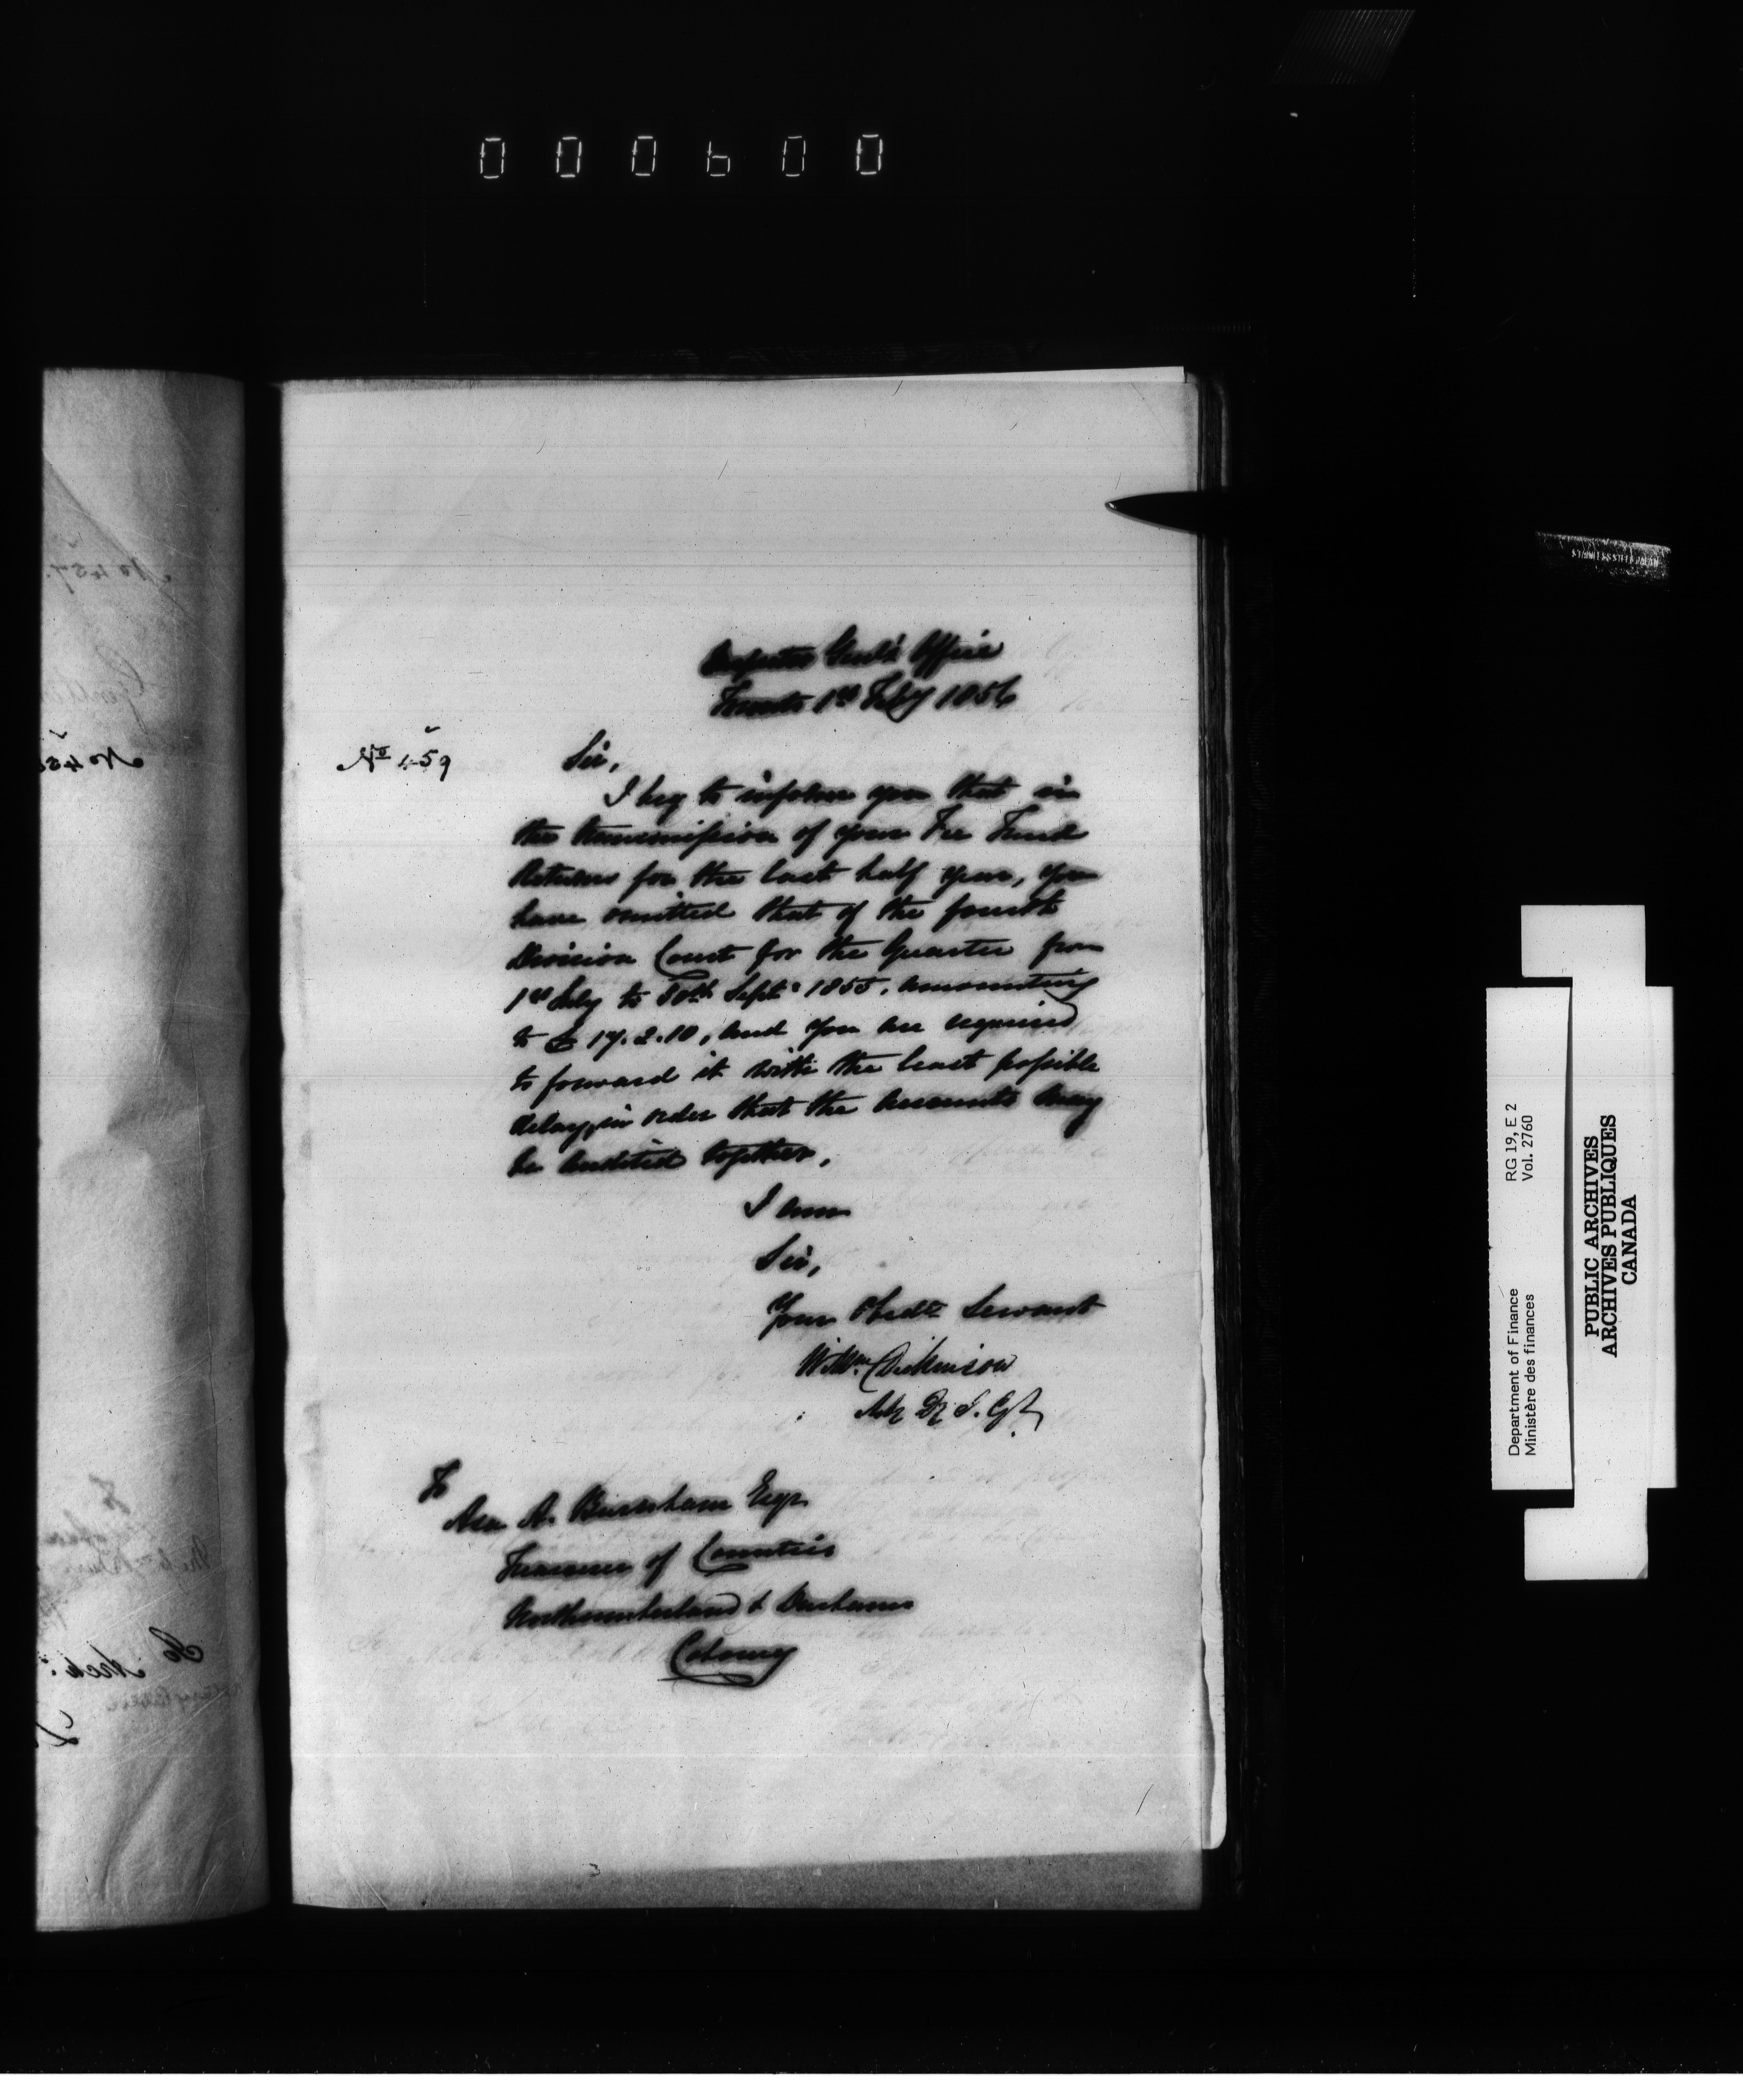 000600
Inspector Genl's Office
Toronto 1st Feby 1856
No 459
Sir,
I beg to inform you that in
the transmission of your Fee Fund
Returns for the last half year, you
have omitted that of the fourth
Division Court for the Quarter from
1st July to 30th Septr 1855, amounting
to £ 17.2.10, and you are required
to forward it with the least possible
delay, in order that the accounts may
be audited together.
I am
Sir,
Your Obedt Servant
Willm Dickinson
I.G.
To
Asa A. Burnham Esqr
Treasurer of Counties
Northumberland & Durham
Cobourg
No 457.
No 45
To
Department of Finance RG 19, E 2
Ministère des finances Vol. 2760
PUBLIC ARCHIVES
ARCHIVES PUBLIQUES
CANADA